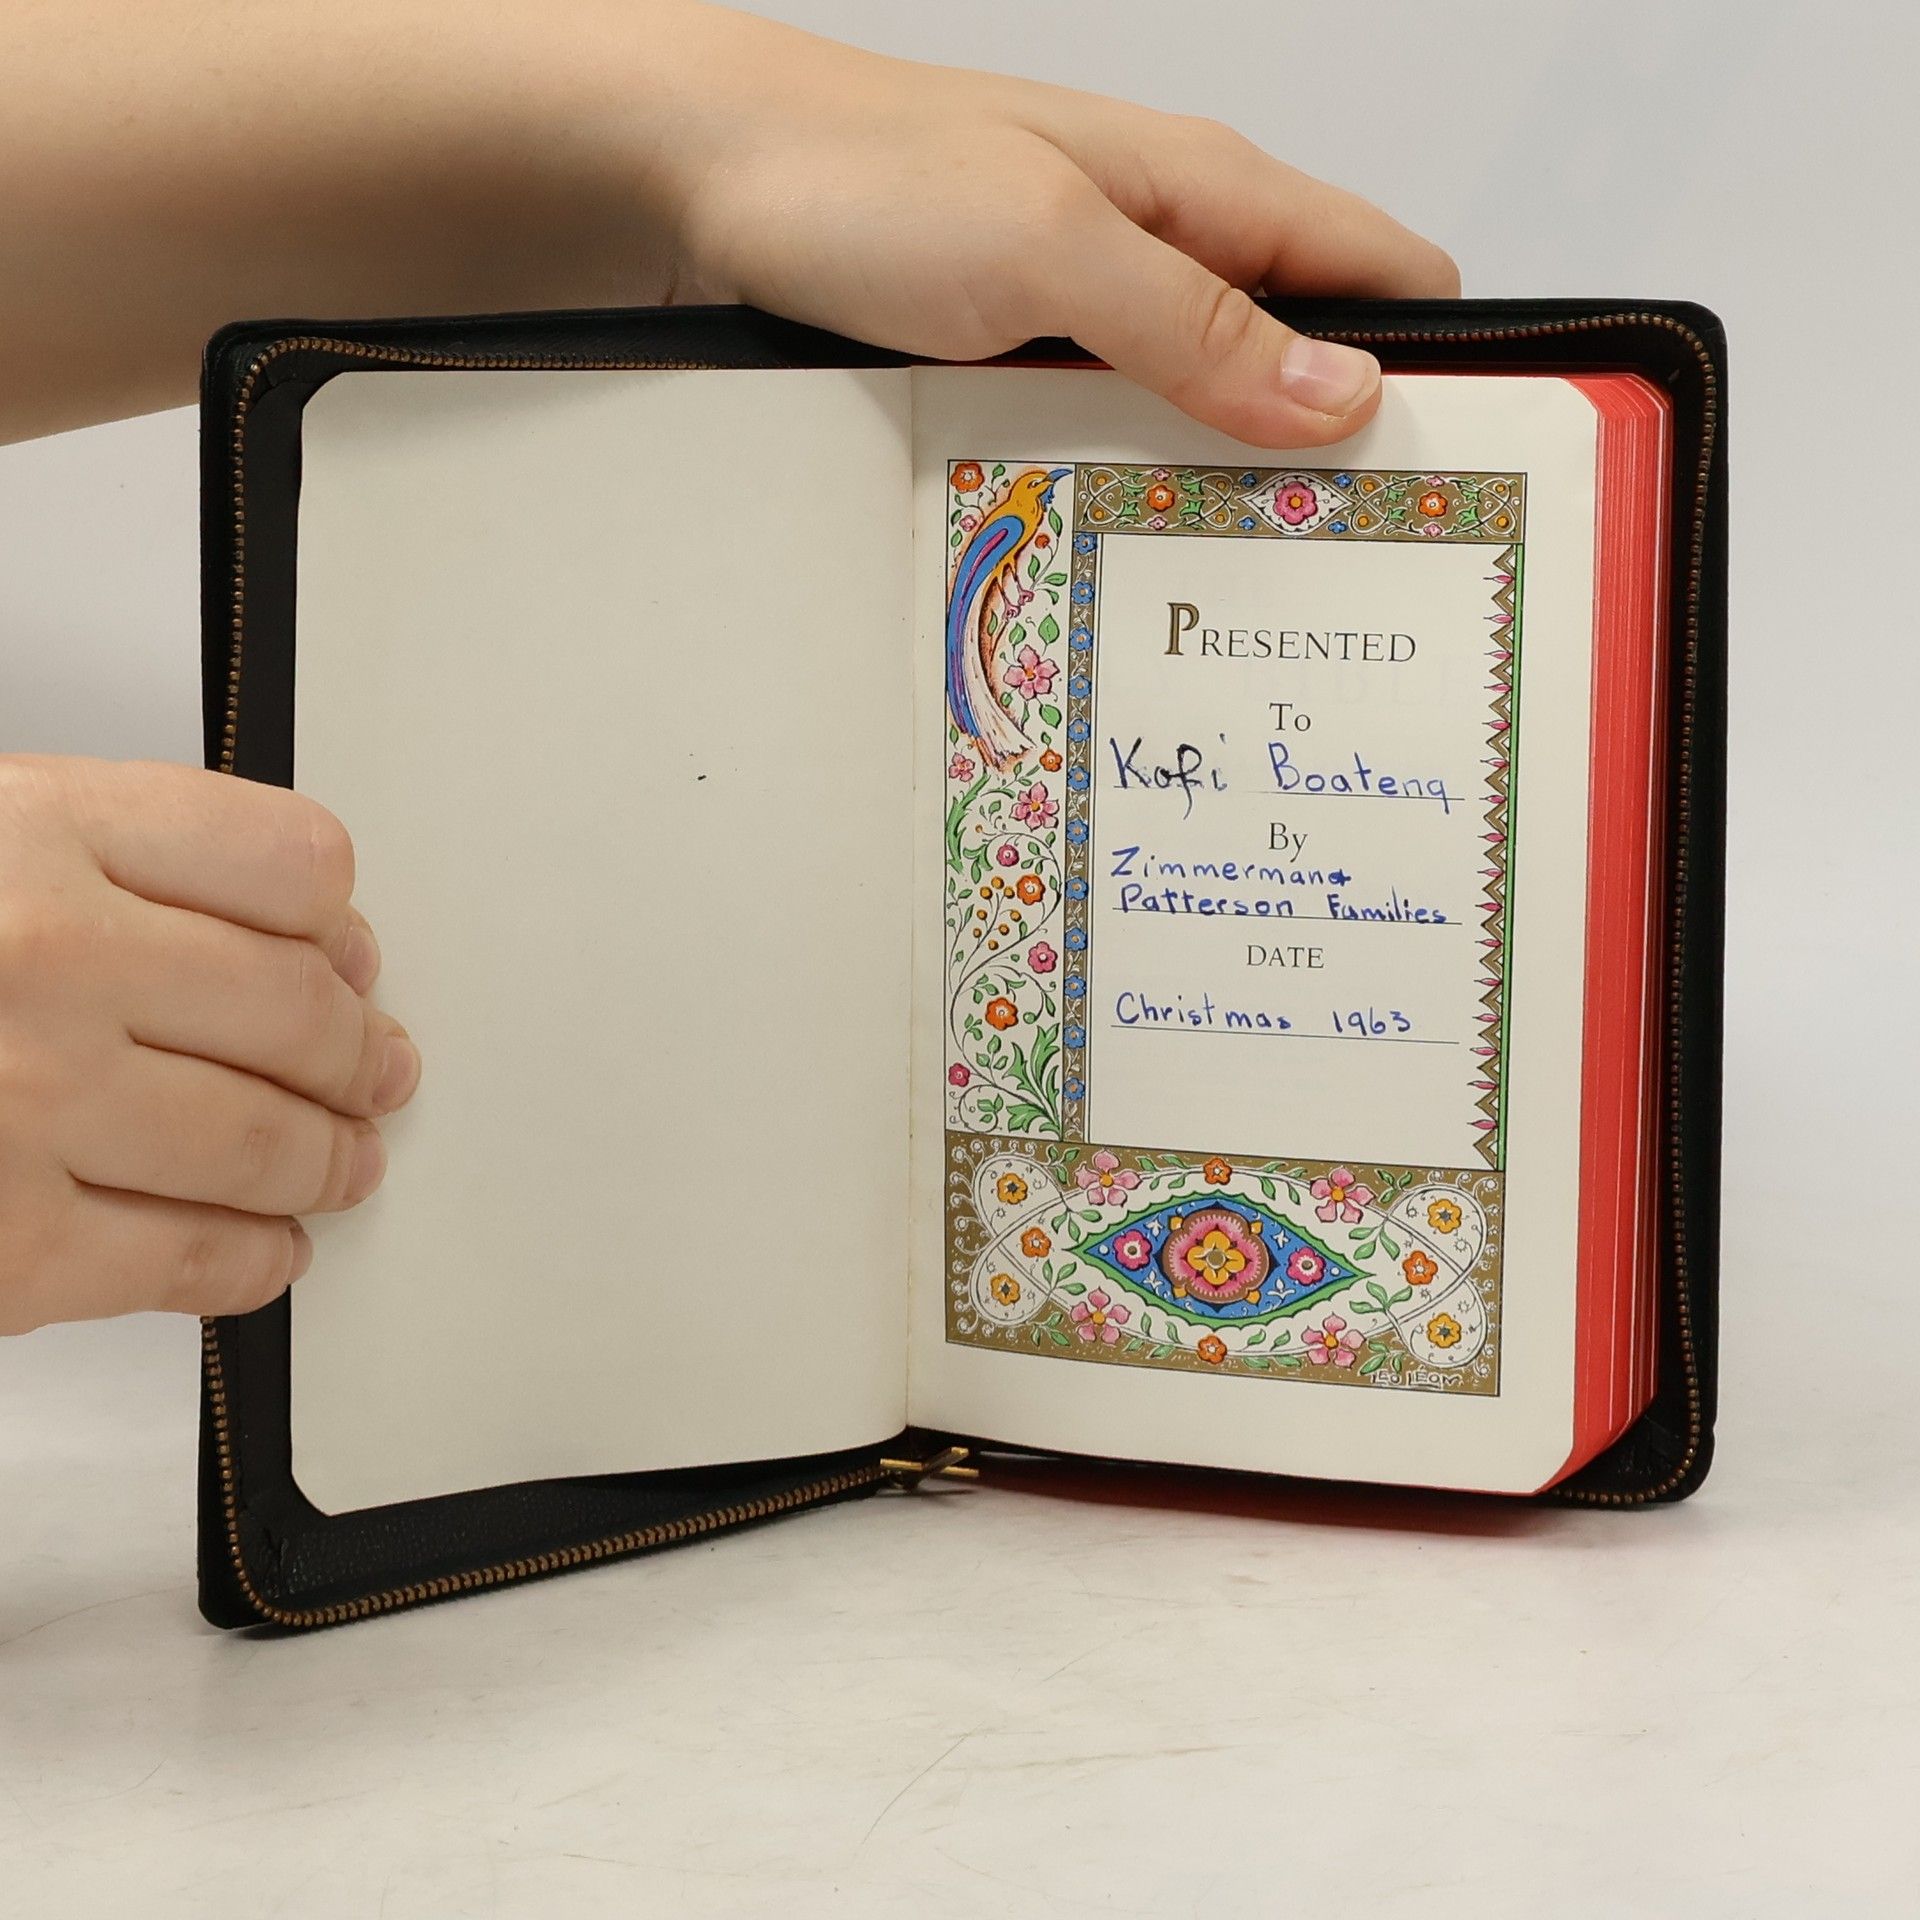 PRESENTED
To
Kofi Boateng
By
Zimmerman &
Patterson Families
DATE
Christmas 1963
LEO LÉON